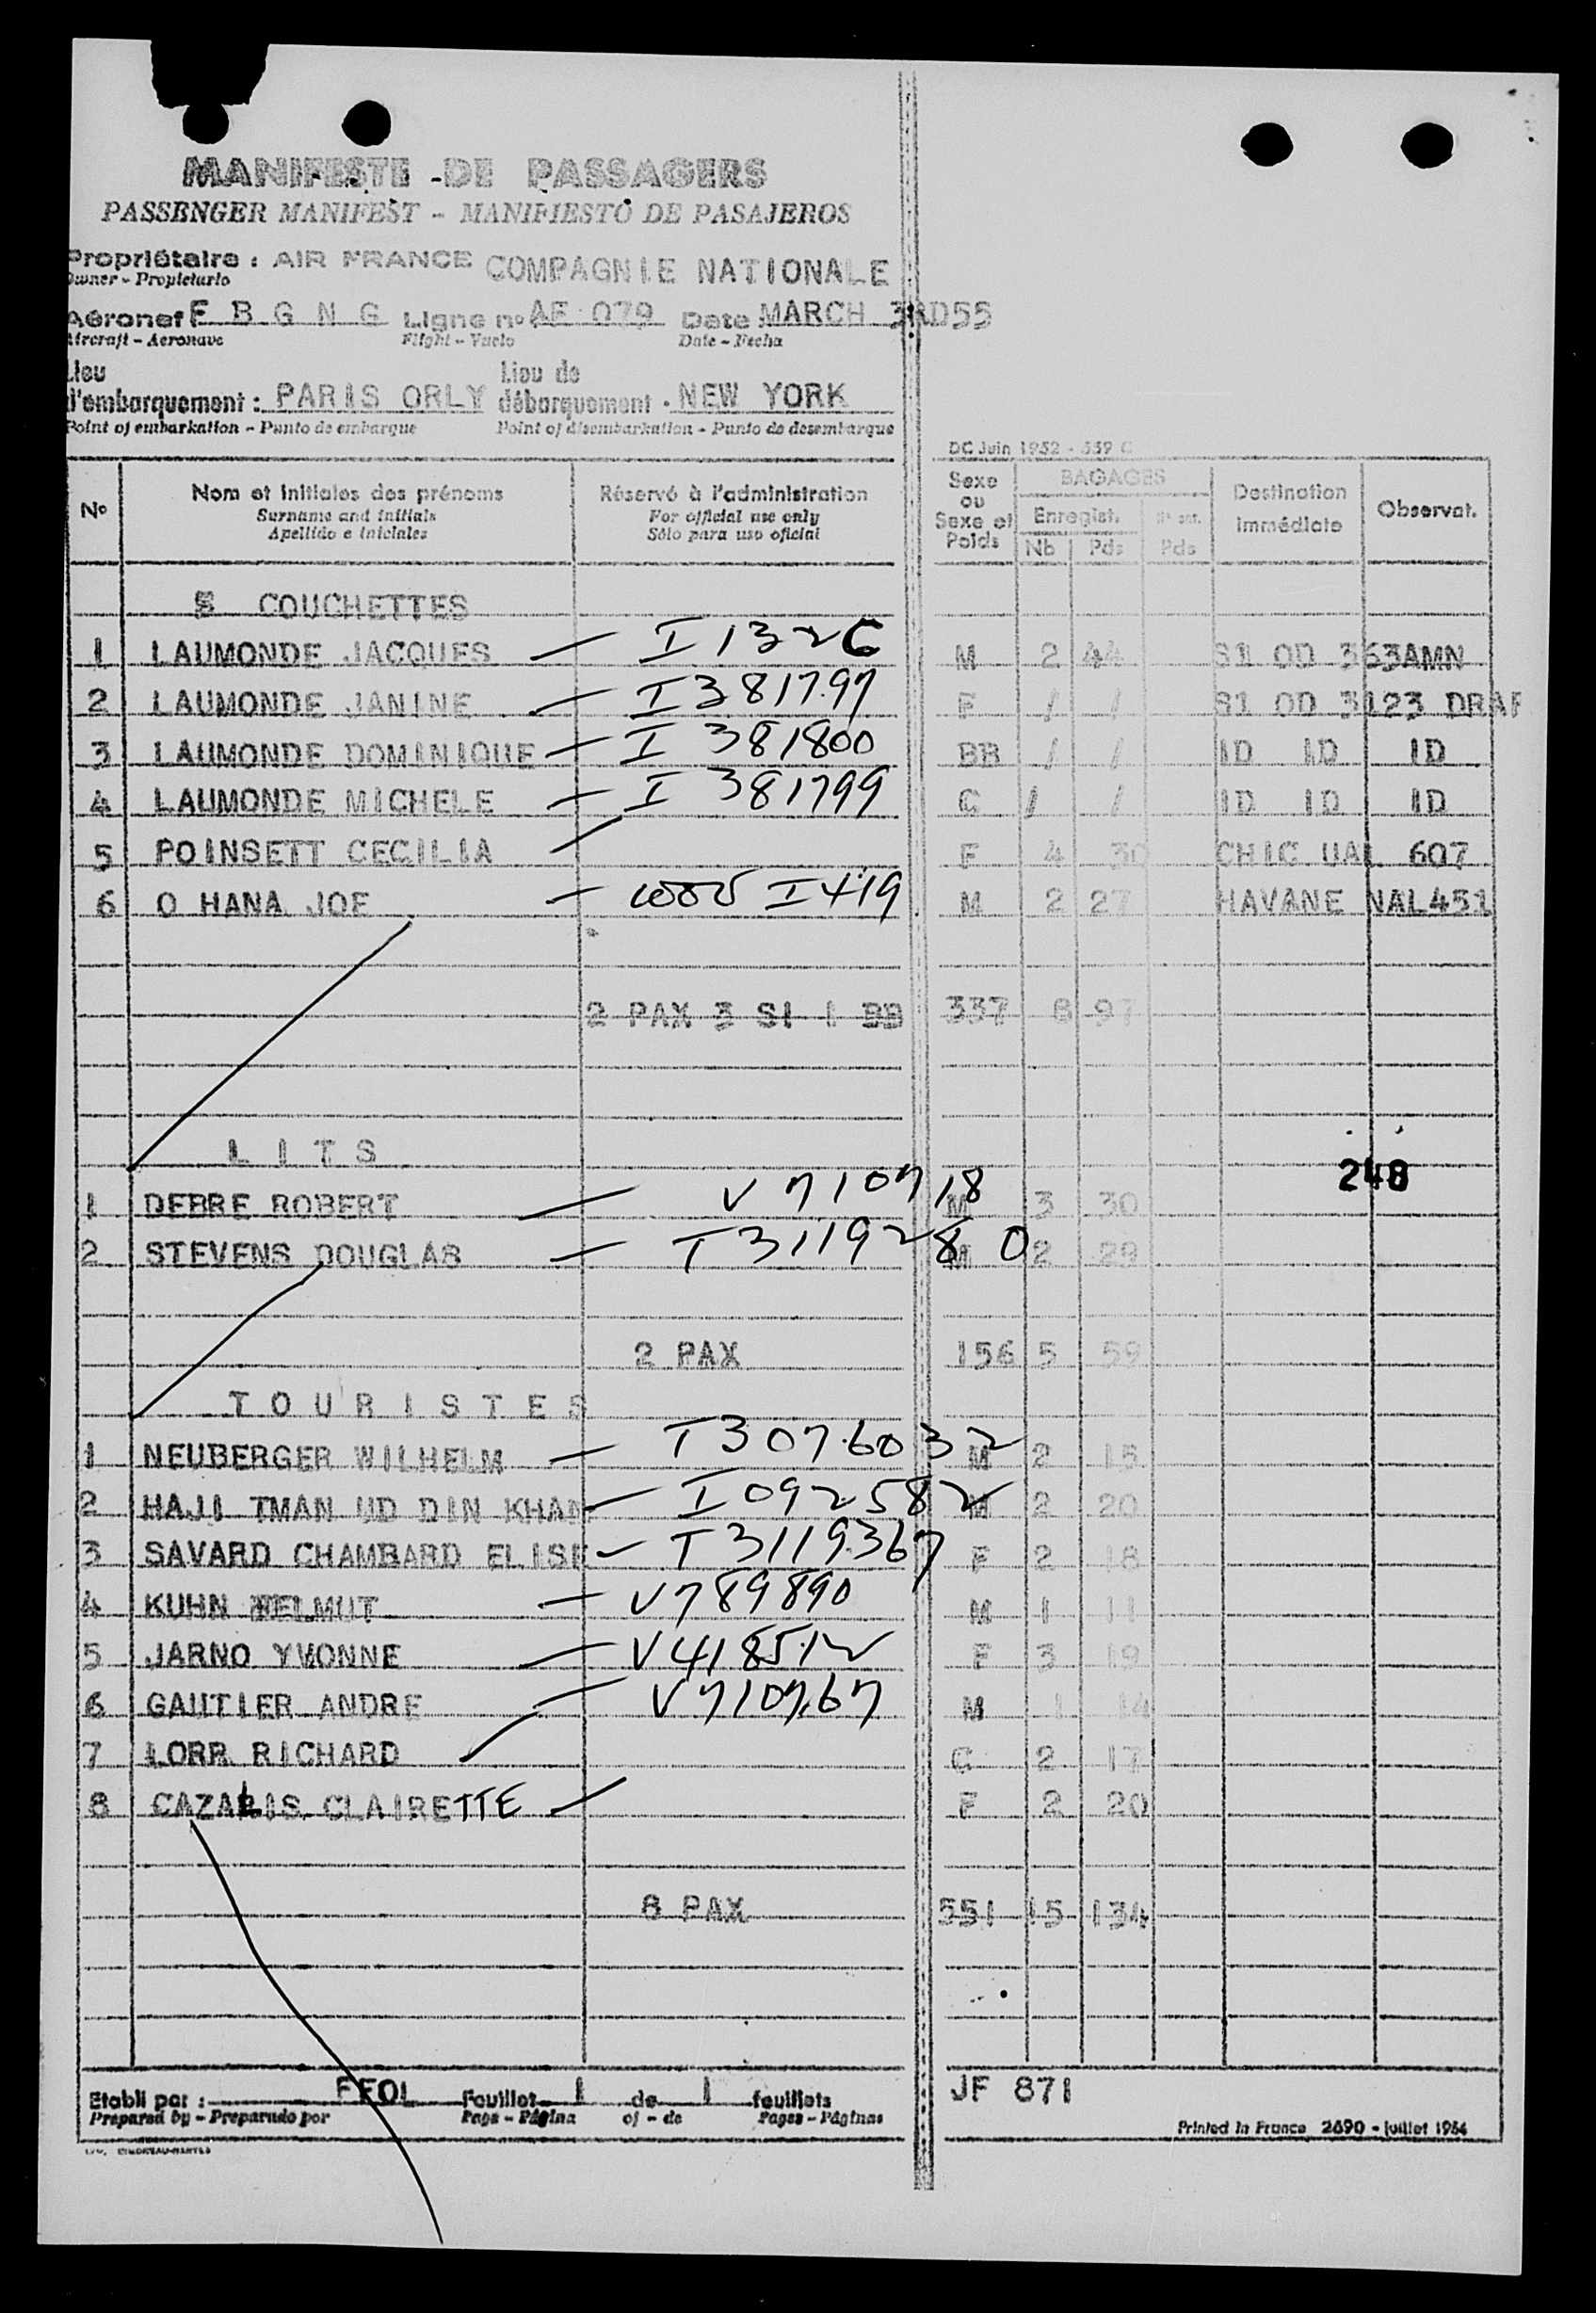 MANIFESTE DE PASSAGERS
PASSENGER MANIFEST - MANIFIESTO DE PASAJEROS
Propriétaire : AIR FRANCE COMPAGNIE NATIONALE
Owner - Propietario
Aéronef F B G N G Ligne no AF 079 Date MARCH 3RD55
Aircraft - Aeronave Flight - Vuelo Date - Fecha
Lieu Lieu de
d'embarquement : PARIS ORLY débarquement . NEW YORK
Point of embarkation - Punto de embarque Point of disembarkation - Punto de desembarque
DC Juin 1952 - 559 C
No Nom et initiales des prénoms Réservé à l'administration Sexe ou Sexe et Poids BAGAGES Destination immédiate Observat.
Surname and initials For official use only Enregist.
Apellido e iniciales Sólo para uso oficial Nb Pds Pds
COUCHETTES
1 LAUMONDE JACQUES — I 1326 M 2 44 S1 OD 363AMN
2 LAUMONDE JANINE — I 381797 F / / S1 OD 3123 DRAF
3 LAUMONDE DOMINIQUE — I 381800 BB / / ID ID ID
4 LAUMONDE MICHELE — I 381799 C / / ID ID ID
5 POINSETT CECILIA F 4 30 CHIC UAL 607
6 O HANA JOE — I 419 M 2 27 HAVANE NAL451
2 PAX 3 SI 1 BB 337 8 97
L I T S
248
1 DEBRE ROBERT — V 710718 M 3 30
2 STEVENS DOUGLAS — T 3119280 M 2 29
2 PAX 156 5 59
T O U R I S T E S
1 NEUBERGER WILHELM — T 3076032 M 2 15
2 HAJI TMAN UD DIN KHAN — I 092582 M 2 20
3 SAVARD CHAMBARD ELISE — T 3119367 F 2 18
4 KUHN HELMUT — V 789890 M 1 11
5 JARNO YVONNE — V 418512 F 3 19
6 GAUTIER ANDRE — V 710767 M 1 14
7 LORR RICHARD C 2 17
8 CAZALIS CLAIRETTE F 2 20
8 PAX 551 15 134
Etabli par : FFOL Feuillet 1 de 1 feuillets JF 871
Prepared by - Preparado por Page - Página of - de Pages - Páginas
Printed in France 2690 - juillet 1954